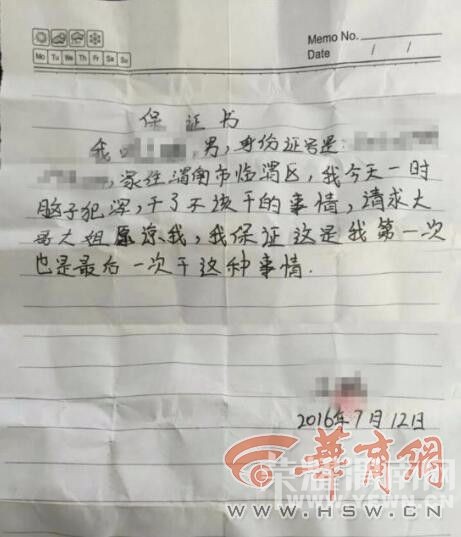 Memo No.
Mo Tu We Th Fr Sa Su
Date / /
保 证 书
我 男,身份证号是:
,家住渭南市临渭区,我今天一时
脑子犯浑,干了不该干的事情,请求大
哥大姐原谅我,我保证这是我第一次
也是最后一次干这种事情.
2016年7月12日
华商网
WWW.HSW.CN